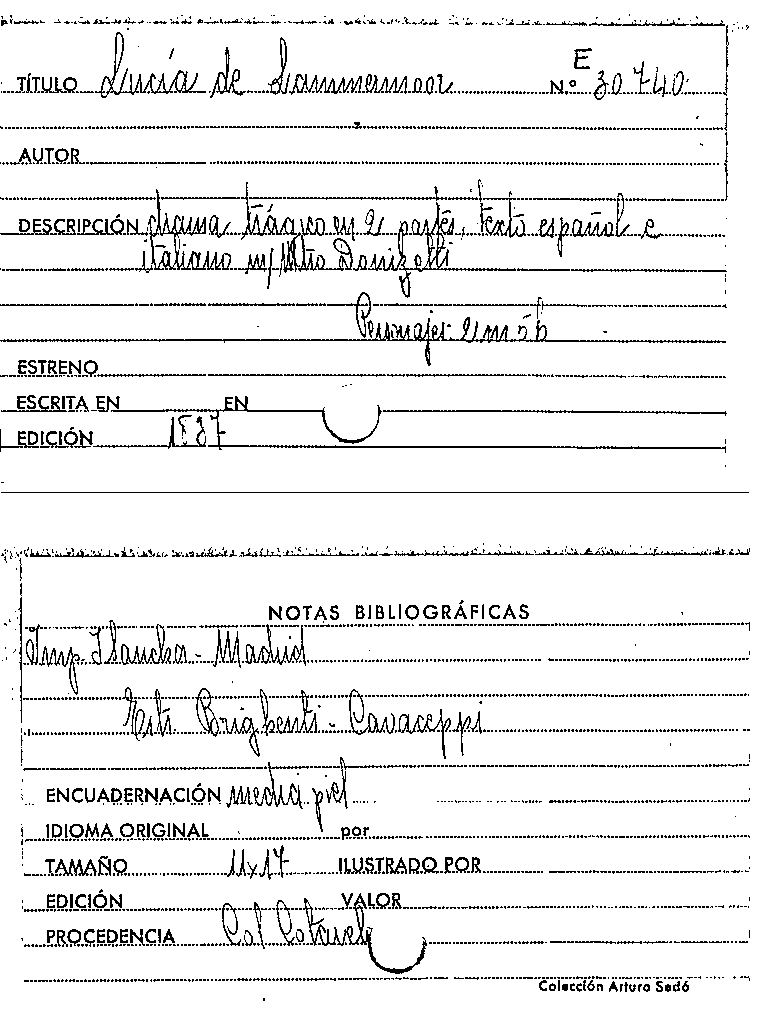 TÍTULO Lucía de Lammermoor N.º E 30740
AUTOR
DESCRIPCIÓN drama trágico en 2 partes, texto español e
italiano m/ Mtro Donizetti
Personajes: 2 m 5 h
ESTRENO
ESCRITA EN EN
EDICIÓN
NOTAS BIBLIOGRÁFICAS
Imp. Sancha - Madrid
Ests. Brighenti - Cavaceppi
ENCUADERNACIÓN media piel
IDIOMA ORIGINAL por
TAMAÑO 11x17 ILUSTRADO POR
EDICIÓN VALOR
PROCEDENCIA Col Cotarelo
Colección Arturo Sedó